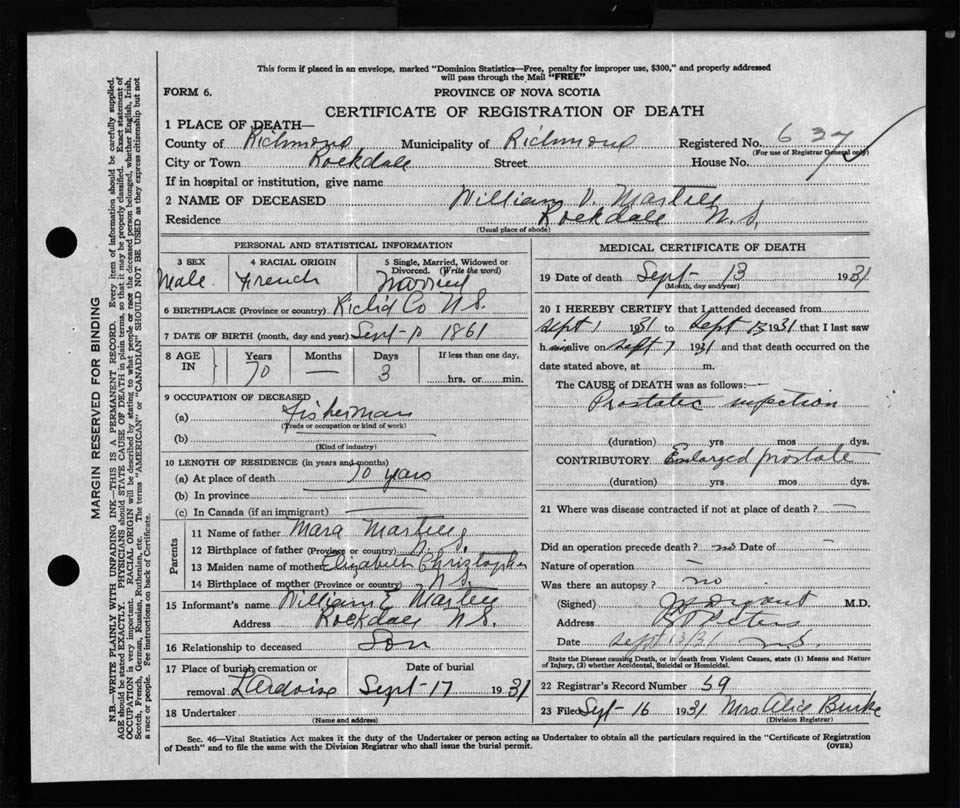 This form if placed in an envelope, marked "Dominion Statistics—Free, penalty for improper use, $300," and properly addressed
will pass through the Mail "FREE"
FORM 6.
PROVINCE OF NOVA SCOTIA
CERTIFICATE OF REGISTRATION OF DEATH
1 PLACE OF DEATH—
County of Richmond Municipality of Richmond Registered No. 637
(For use of Registrar General only)
City or Town Rockdale Street House No.
If in hospital or institution, give name
2 NAME OF DECEASED William D. Martell
Residence Rockdale N.S.
(Usual place of abode)
PERSONAL AND STATISTICAL INFORMATION
3 SEX 4 RACIAL ORIGIN 5 Single, Married, Widowed or
Divorced. (Write the word)
Male French Married
6 BIRTHPLACE (Province or country) Rich'd Co N.S.
7 DATE OF BIRTH (month, day and year) Sept 10 1861
8 AGE IN Years Months Days If less than one day,
70 — 3 hrs. or min.
9 OCCUPATION OF DECEASED
(a) Fisherman
(Trade or occupation or kind of work)
(b)
(Kind of industry)
10 LENGTH OF RESIDENCE (in years and months)
(a) At place of death 70 years
(b) In province
(c) In Canada (if an immigrant)
Parents
11 Name of father Martell
12 Birthplace of father (Province or country) N.S.
13 Maiden name of mother Elizabeth Christopher
14 Birthplace of mother (Province or country) N.S.
15 Informant's name William E. Martell
Address Rockdale N.S.
16 Relationship to deceased Son
17 Place of burial, cremation or Date of burial
removal L'Ardoise Sept-17 1931
18 Undertaker
(Name and address)
MEDICAL CERTIFICATE OF DEATH
19 Date of death Sept- 13 1931
(Month, day and year)
20 I HEREBY CERTIFY that I attended deceased from
Sept 1 1931 to Sept 13 1931 that I last saw
h im alive on Sept 7 1931 and that death occurred on the
date stated above, at m.
The CAUSE of DEATH was as follows:—
Prostatic infection
(duration) yrs mos dys.
CONTRIBUTORY Enlarged prostate
(duration) yrs mos dys.
21 Where was disease contracted if not at place of death? —
Did an operation precede death? no Date of —
Nature of operation —
Was there an autopsy? no
(Signed) M.D.
Address St Peters
Date Sept 13/31 N.S.
State the Disease causing Death, or in death from Violent Causes, state (1) Means and Nature
of Injury, (2) whether Accidental, Suicidal or Homicidal.
22 Registrar's Record Number 59
23 Filed Sept-16 1931 Mrs Alice Burke
(Division Registrar)
Sec. 46—Vital Statistics Act makes it the duty of the Undertaker or person acting as Undertaker to obtain all the particulars required in the "Certificate of Registration
of Death" and to file the same with the Division Registrar who shall issue the burial permit.
(OVER)
MARGIN RESERVED FOR BINDING
N.B.—WRITE PLAINLY WITH UNFADING INK—THIS IS A PERMANENT RECORD. Every item of information should be carefully supplied.
AGE should be stated EXACTLY. PHYSICIANS should STATE CAUSE OF DEATH in plain terms, so that it may be properly classified. Exact statement of
OCCUPATION is very important. RACIAL ORIGIN will be described by stating to what people or race the deceased person belonged, whether English, Irish,
Scotch, French, German, Russian, Ruthenian, etc. The terms "AMERICAN" or "CANADIAN" SHOULD NOT BE USED as they express citizenship but not
a race or people. See instructions on back of Certificate.